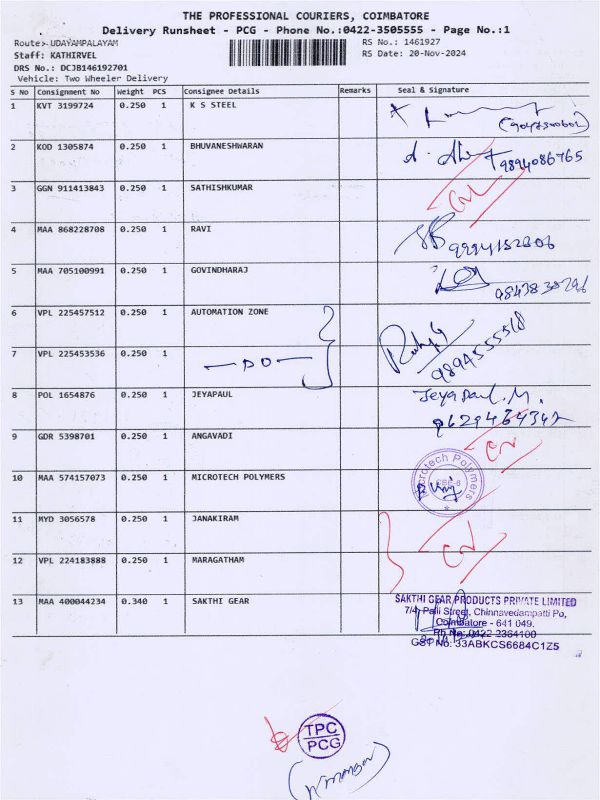 THE PROFESSIONAL COURIERS, COIMBATORE
Delivery Runsheet - PCG - Phone No.:0422-3505555 - Page No.:1
Route:- UDAYAMPALAYAM RS No.: 1461927
Staff: KATHIRVEL RS Date: 20-Nov-2024
DRS No.: DCJB146192701
Vehicle: Two Wheeler Delivery
S No Consignment No Weight PCS Consignee Details Remarks Seal & Signature
1 KVT 3199724 0.250 1 K S STEEL
2 KOD 1305874 0.250 1 BHUVANESHWARAN 9894086765
3 GGN 911413843 0.250 1 SATHISHKUMAR
4 MAA 868228708 0.250 1 RAVI
5 MAA 705100991 0.250 1 GOVINDHARAJ
6 VPL 225457512 0.250 1 AUTOMATION ZONE
7 VPL 225453536 0.250 1 —DO—
8 POL 1654876 0.250 1 JEYAPAUL Jeyapaul.M.
9 GDR 5398701 0.250 1 ANGAVADI
10 MAA 574157073 0.250 1 MICROTECH POLYMERS Microtech Polymers
11 MYD 3056578 0.250 1 JANAKIRAM
12 VPL 224183888 0.250 1 MARAGATHAM
13 MAA 400044234 0.340 1 SAKTHI GEAR SAKTHI GEAR PRODUCTS PRIVATE LIMITED
7/4, Palli Street, Chinnavedampatti Po,
Coimbatore - 641 049.
Ph No: 0422 2364100
GST No: 33ABKCS6684C1Z5
TPC
PCG